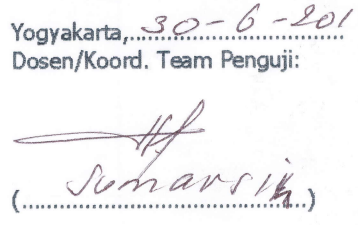 Yogyakarta,30-6-201
Dosen/Koord. Team Penguji:
(Sumarsih)